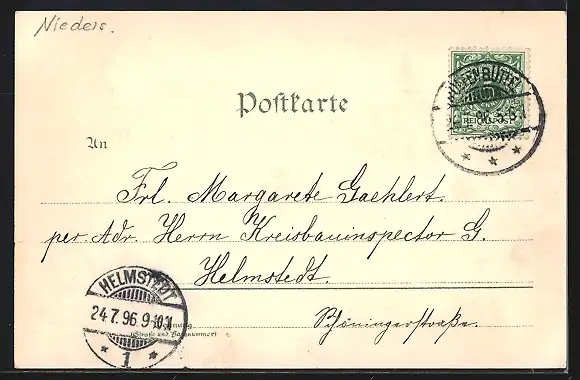 Nieders.
Postkarte
REICHSPOST
An
Frl. Margarete Gaehlert.
per. Adr. Herrn Kreisbauinspector G.
Helmstedt.
HELMSTEDT
24.7.96.9-10V
*1*
Wohnung
(Straße und Hausnummer)
Schöningerstraße.